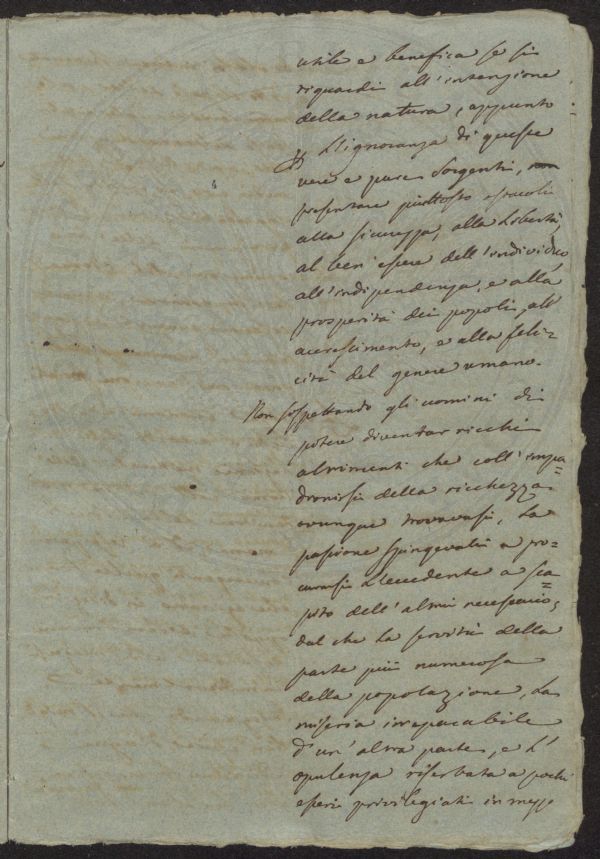 utile e benefica se si
riguardi all'intenzione
della natura, appunto
L'ignoranza di queste
vere e pure sorgenti, non
presentare piuttosto ostacoli
alla sicurezza, alla libertà,
al ben' essere dell'individuo,
all'indipendenza, e alla
prosperità dei popoli, all'
accrescimento, e alla feli=
cità del genere umano.
Non sospettando gli uomini di
potere diventar ricchi
altrimenti che coll'impa=
dronirsi della ricchezza
ovunque trovavasi, la
passione spingevali a pro=
curarsi l'eccedente a sca=
pito dell'altrui necessario,
dal che la servitù della
parte più numerosa
della popolazione, la
miseria irreparabile
d'un'altra parte, e l'
opulenza riserbata a pochi
esseri privilegiati in mezzo